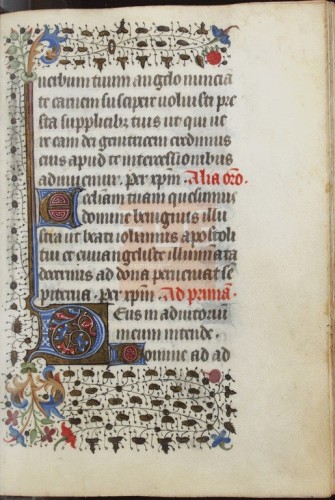 verbum tuum angelo nuncian
te carnem suscipere voluisti pre
sta supplicibus tuis ut qui ve
re eam dei genitricem credimus
eius apud te intercessionibus
adiuvemur. Per xpm. Alia oro.
Ecclesiam tuam quesumus
domine benignus illu
stra ut beati iohannis apostoli
tui et euvangeliste illuminata
doctrinis ad dona perveniat se
piterna. per xpm. Ad primam.
Deus in adiutorium
meum intende.
Domine ad ad